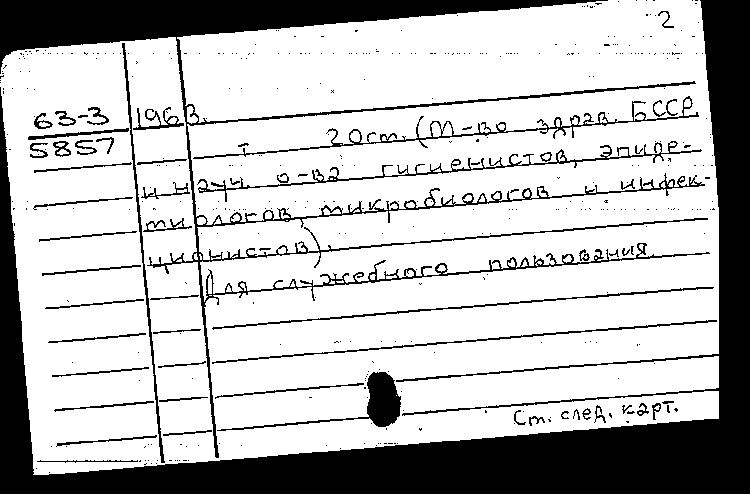 2
63-3 1963.
5857 т 20см. (М-во здрав. БССР
и науч. о-ва гигиенистов, эпиде-
миологов, микробиологов и инфек-
ционистов).
Для служебного пользования.
См. след. карт.